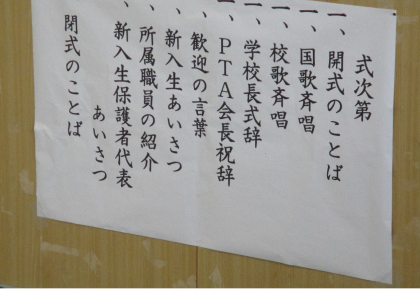 式次第
一、開式のことば
一、国歌斉唱
一、校歌斉唱
一、学校長式辞
一、PTA会長祝辞
、歓迎の言葉
、新入生あいさつ
、所属職員の紹介
、新入生保護者代表
あいさつ
閉式のことば